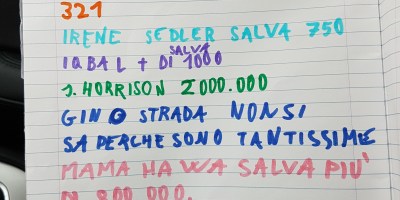 321
IRENE SEDLER SALVA 750
IQBAL + DI SALVA 1000
J. HORRISON 2000.000
GINO STRADA NON SI
SA PERCHE SONO TANTISSIME
MAMA HAWA SALVA PIU'
DI 800 000.